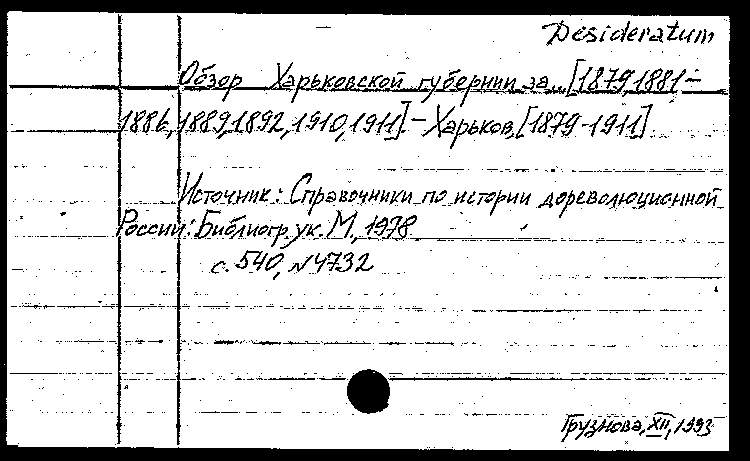 Desideratum
Обзор Харьковской губернии за... [1879, 1881-
1886, 1889, 1892, 1910, 1911]. - Харьков, [1879-1911]
Источник: Справочники по истории дореволюционной
России: Библиогр. ук. М., 1978.
с. 540, №4732
Грузнова, XII, 1993